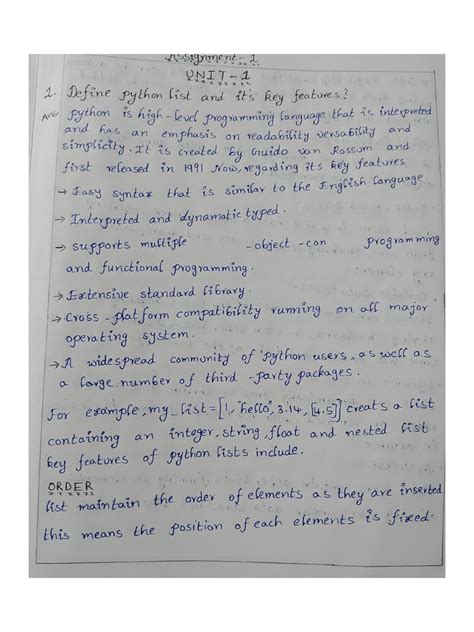 Assignment - 1
UNIT-1
1. Define python list and it's key features?
Ans python is high-level programming language that is interpreted
and has an emphasis on readability versability and
simplicity. It is created by Guido van Rossum and
first released in 1991 Now, regarding it's key features
→ Easy syntax that is similar to the English language
→ Interpreted and dynamatic typed.
→ supports multiple -object -con programming
and functional programming.
→ Extensive standard library.
→ Cross-platform compatibility running on all major
operating system.
→ A widespread community of python users, as well as
a large number of third-party packages.
For example, my_list=[1, "hello", 3.14, [4.5]] creats a list
containing an integer, string, float and nested list
key features of python lists include.
ORDER
list maintain the order of elements as they are inserted
this means the position of each elements is fixed